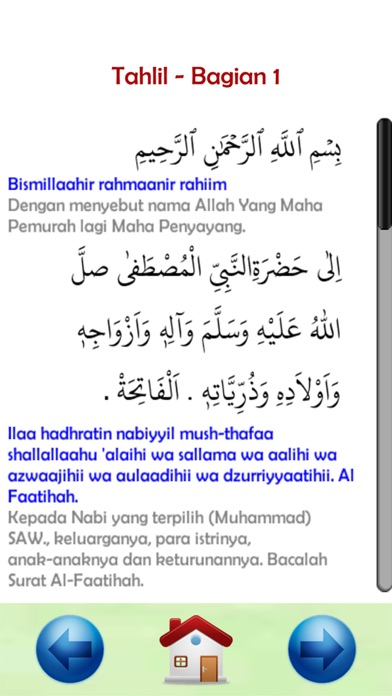 Tahlil - Bagian 1
بِسْمِ ٱللَّهِ ٱلرَّحْمَٰنِ ٱلرَّحِيمِ
Bismillaahir rahmaanir rahiim
Dengan menyebut nama Allah Yang Maha
Pemurah lagi Maha Penyayang.
اِلىٰ حَضْرَةِالنَّبِيِّ الْمُصْطَفىٰ صلَّ
اللهُ عَلَيْهِ وَسَلَّمَ وَآلِهٖ وَاَزْوَاجِهٖ
وَاَوْلَادِهِ وَذُرِّيَّاتِهٖ . اَلْفَاتِحَةْ .
Ilaa hadhratin nabiyyil mush-thafaa
shallallaahu 'alaihi wa sallama wa aalihi wa
azwaajihii wa aulaadihii wa dzurriyyaatihii. Al
Faatihah.
Kepada Nabi yang terpilih (Muhammad)
SAW., keluarganya, para istrinya,
anak-anaknya dan keturunannya. Bacalah
Surat Al-Faatihah.